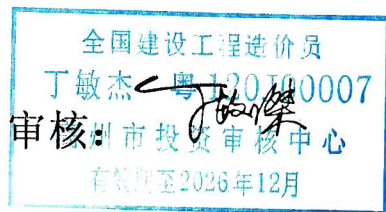 全国建设工程造价员
丁敏杰 粤120J00007
审核：
州市投资审核中心
有效期至2026年12月